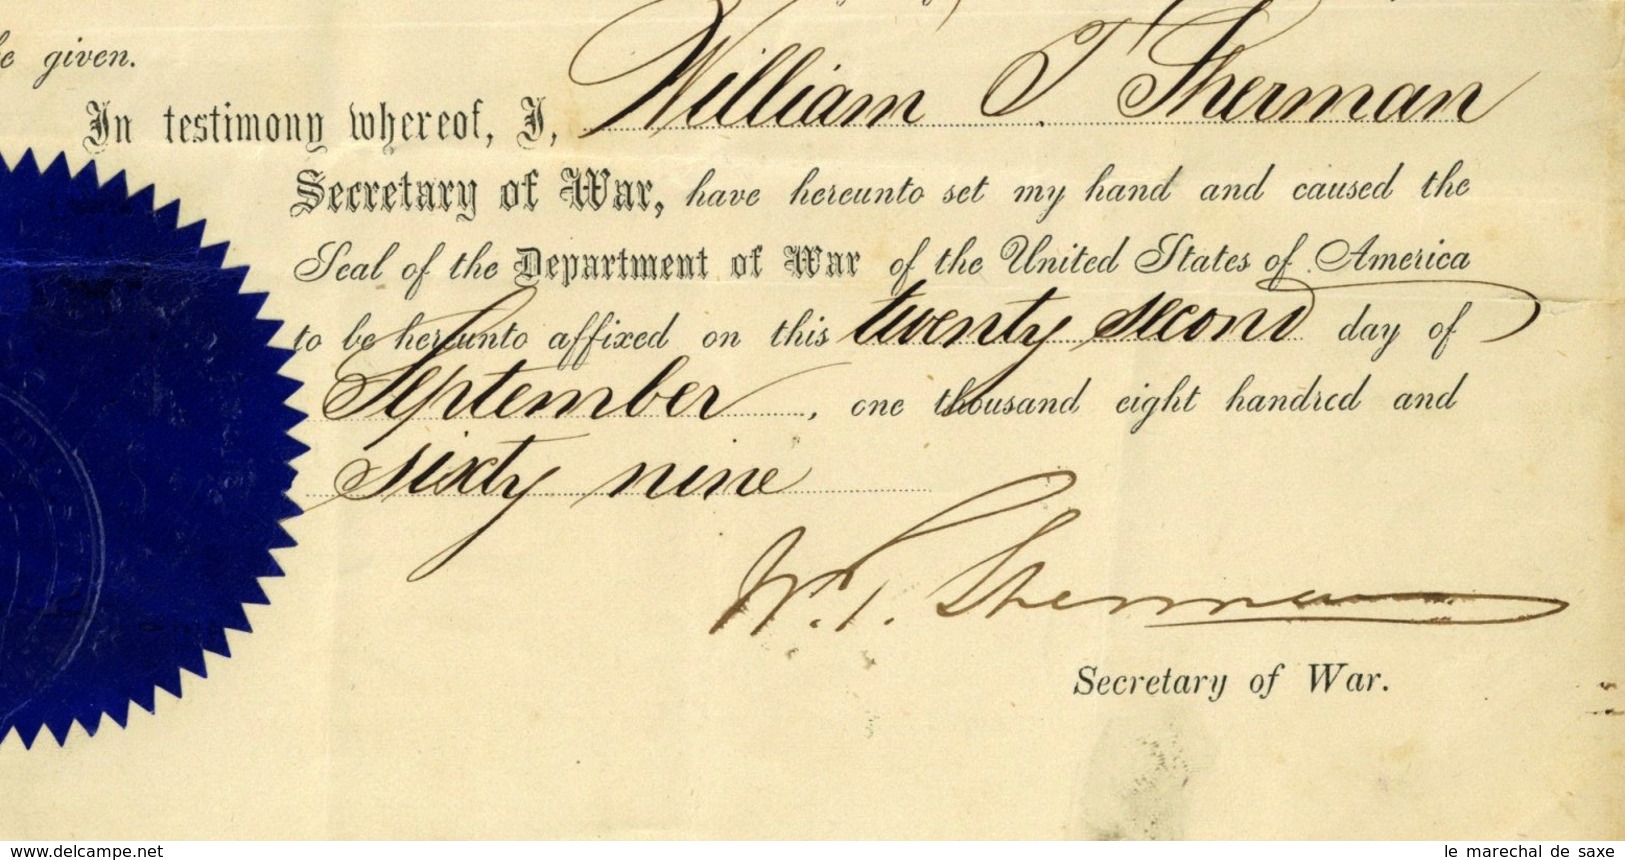 be given.
In testimony whereof, I, William T. Sherman
Secretary of War, have hereunto set my hand and caused the
Seal of the Department of War of the United States of America
to be hereunto affixed on this twenty second day of
September, one thousand eight hundred and
sixty nine
W. T. Sherman
Secretary of War.
www.delcampe.net
le marechal de saxe